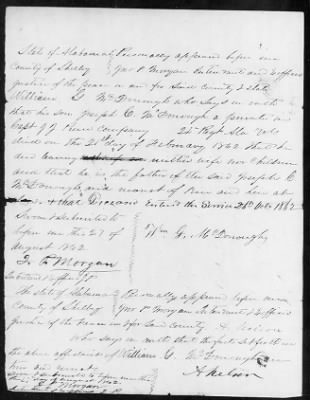 State of Alabama Personally appeared before me
County of Shelby Geo P Morgan Intendant and Exofficio
Justice of the Peace in and for said County & State
William G. McDonough who says on oath
that his son Joseph C. McDonough a private in
Capt Company 24 Regt Ala Vols
died on the 28 day of February 1862 that he
died leaving neither wife nor children
and that he is the father of the said Joseph C
McDonough and nearest of Kin and heir at
law & that Deceased Entered the Service 1862
Sworn & subscribed to
before me the 27 of Wm G. McDonough
August 1862
Geo P. Morgan
Intendant & Exofficio J.P.
The State of Alabama Personally appeared before me
County of Shelby Geo P Morgan Intendant & Exofficio
Justice of the Peace in & for said County A. Nelson
who says on oath that the facts set forth in
the above affidavit of William G. McDonough are
true and correct
Sworn to & subscribed to before me this
27 of August 1862 A Nelson
Geo P Morgan
Intendant & Exofficio J.P.